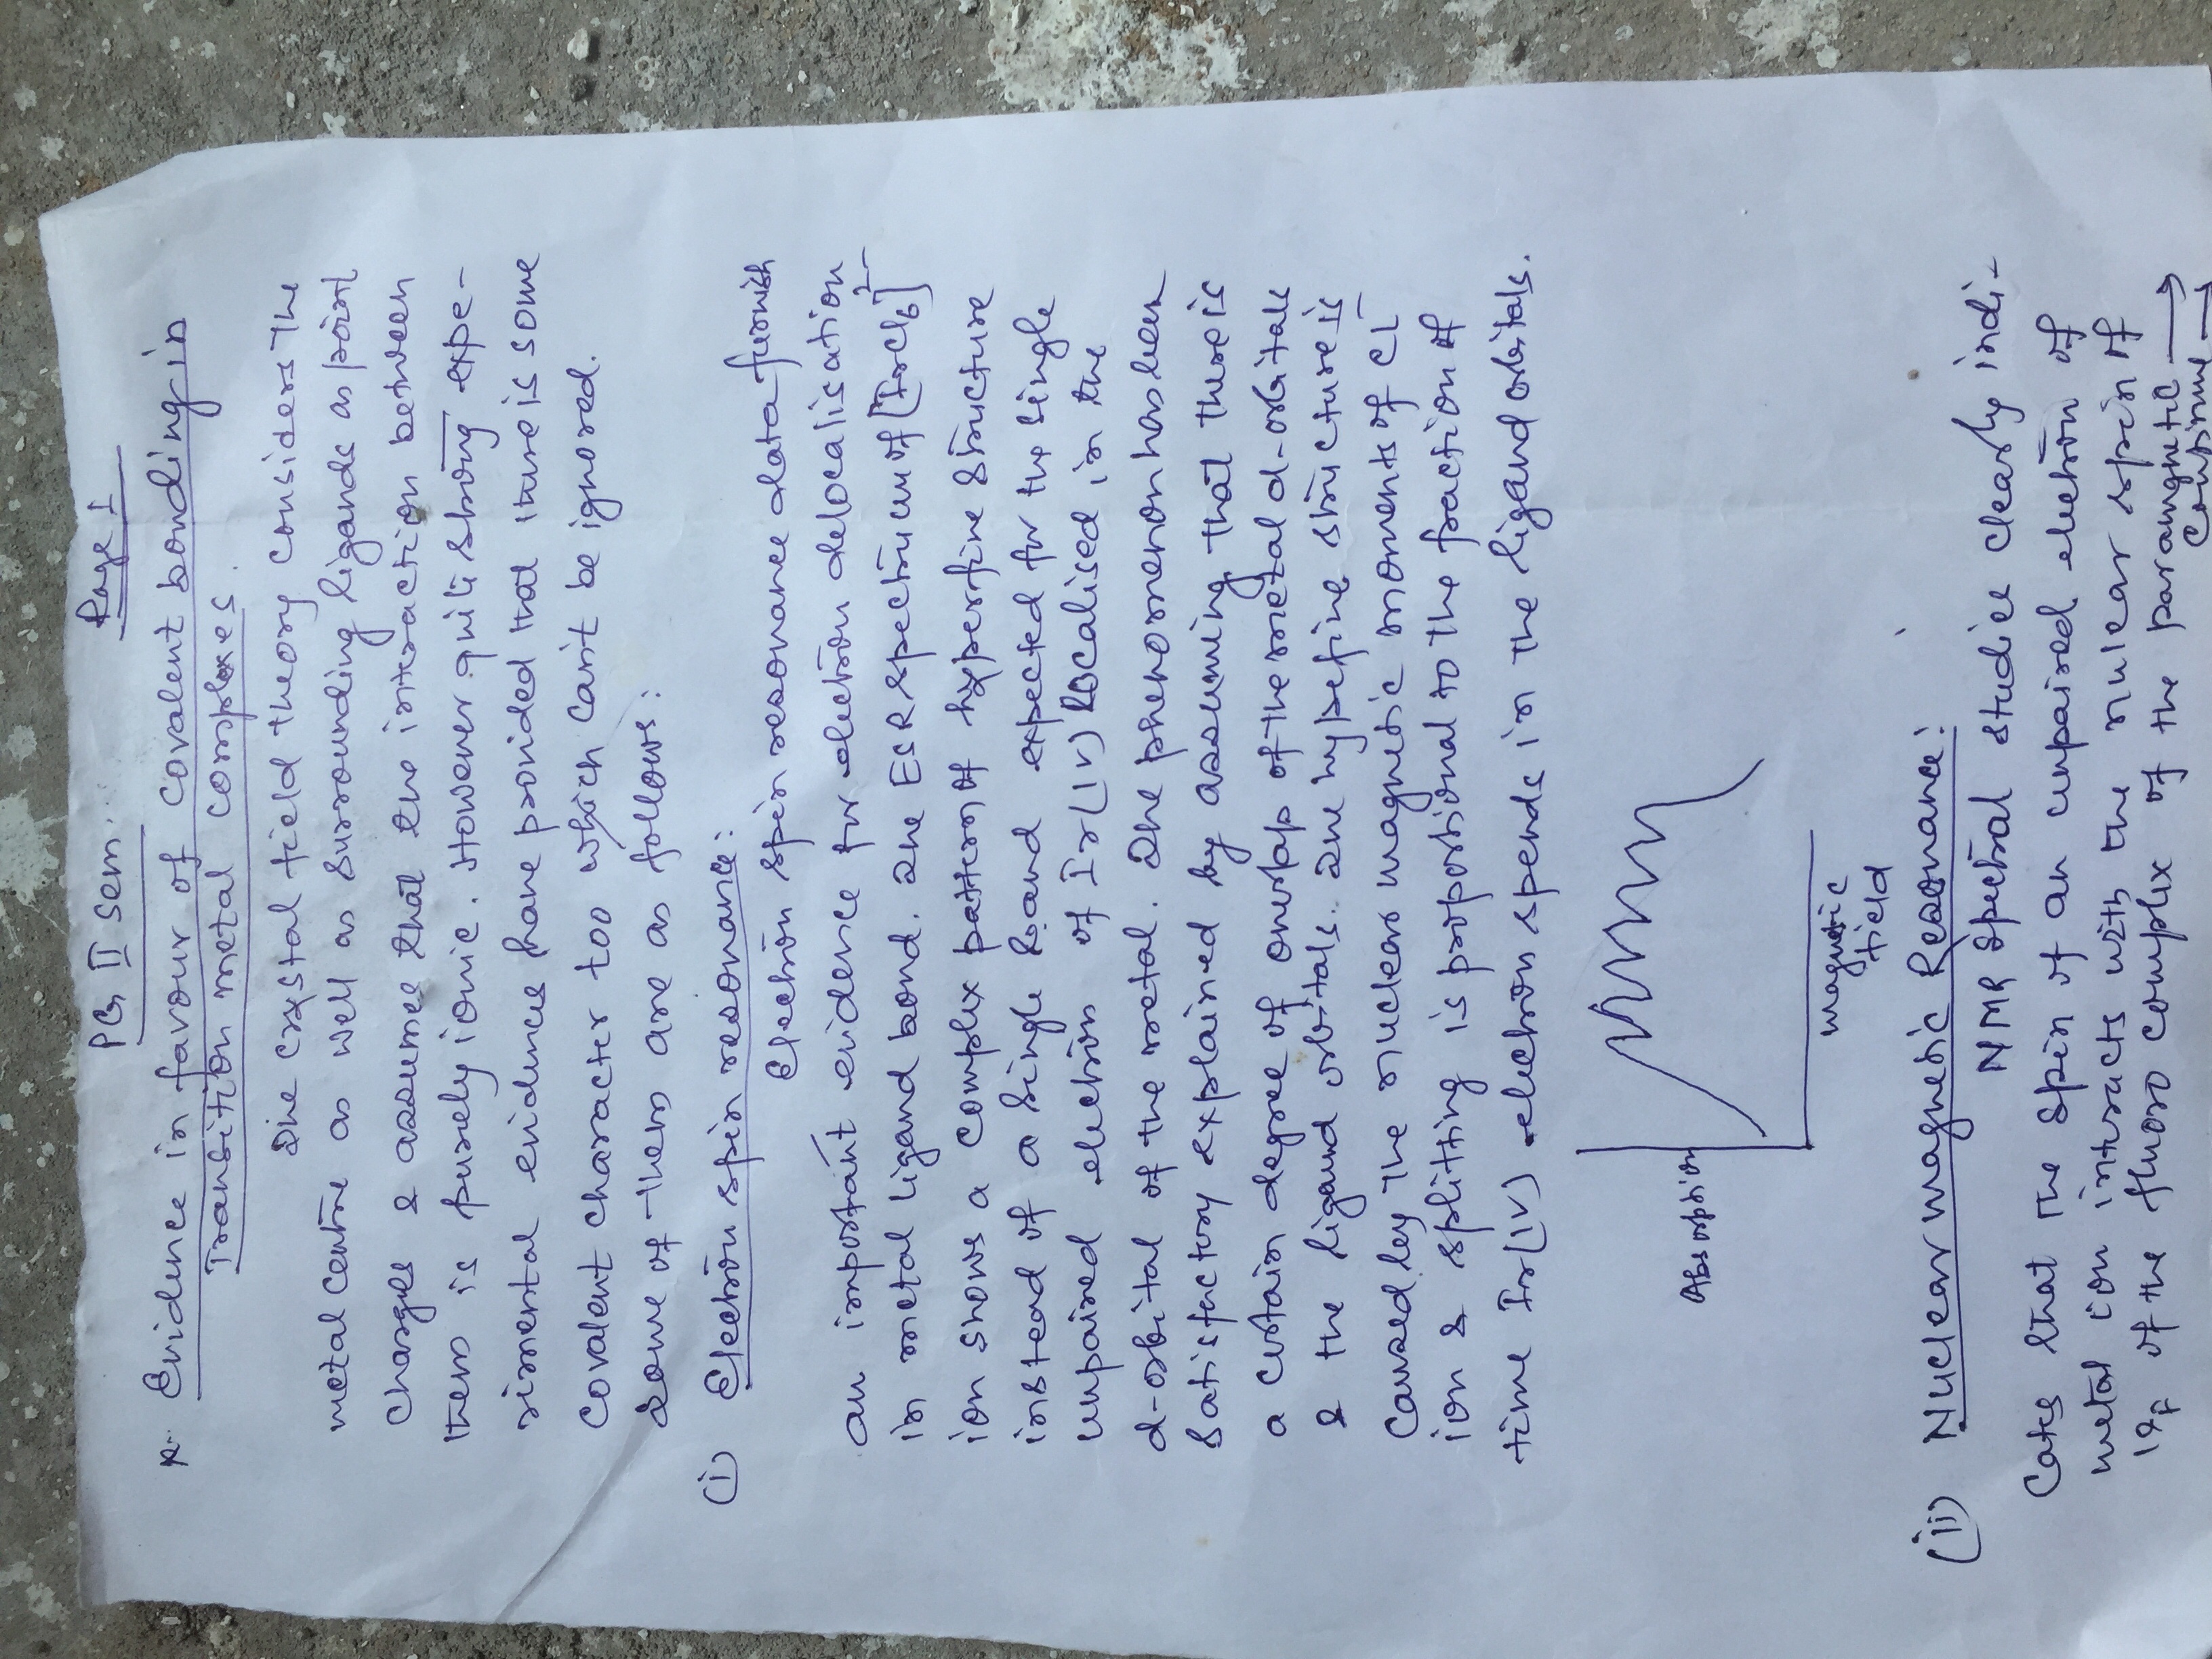 PG II sem. Page 1
Evidence in favour of covalent bonding in
Transition metal complexes.
The crystal field theory considers the
metal centre as well as surrounding ligands as point
charges & assumes that the interaction between
them is purely ionic. However quite strong expe-
rimental evidences have provided that there is some
covalent character too which can't be ignored.
Some of them are as follows:
(i) Electron spin resonance:
Electron spin resonance data furnish
an important evidence for electron delocalisation
in metal ligand bond. The ESR spectrum of [IrCl6]2-
ion shows a complex pattern of hyperfine structure
instead of a single band expected for the single
unpaired electron of Ir(IV) localised in the
d-orbital of the metal. The phenomenon has been
satisfactory explained by assuming that there is
a certain degree of overlap of the metal d-orbitals
& the ligand orbitals. The hypefine structure is
caused by the nuclear magnetic moments of Cl-
ion & splitting is proportional to the fraction of
time Ir(IV) electron spends in the ligand orbitals.
Absorption
magnetic
field
(ii) Nuclear magnetic Resonance:
NMR spectral studies clearly indi-
cates that the spin of an unpaired electron of
metal ion interacts with the nulear spin of
19F of the fluoro complex of the paramgnetic
Continued